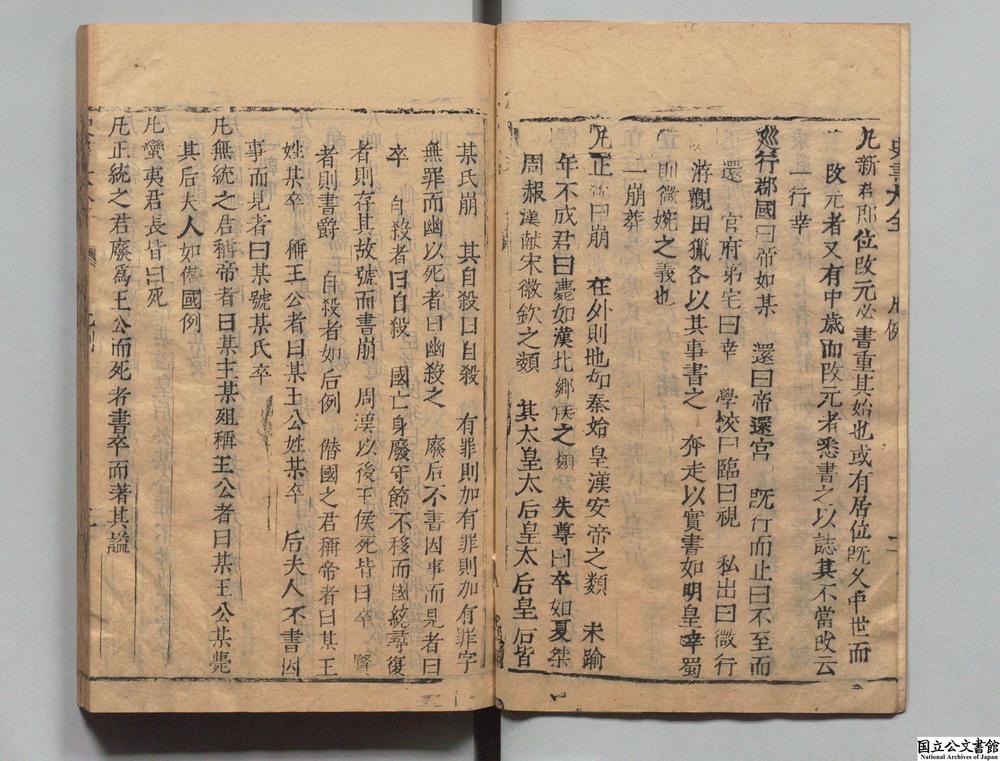 凡例
凡新君即位改元必書重其始也或有居位既久中世而
改元者又有中歲而改元者悉書之以誌其不當改云
一行幸
巡行郡國曰帝如某 還曰帝還宮 既行而止曰不至而
還 官府第宅曰幸 學校曰臨曰視 私出曰微行
游觀田獵各以其事書之 奔走以實書如明皇幸蜀
則微婉之義也
一崩葬
凡正 曰崩 在外則地如秦始皇漢安帝之類 未踰
年不成君曰薨如漢北鄉侯之類 失尊曰卒如夏桀
周赧漢献宋徽欽之類 其太皇太后皇太后皇后皆
某氏崩 其自殺曰自殺 有罪則加有罪則加有罪字
無罪而幽以死者曰幽殺之 廢后不書因事而見者曰
卒 自殺者曰自殺 國亡身廢守節不移而國統尋復
者則存其故號而書崩 周漢以後王侯死皆曰卒 賢
者則書爵 自殺者如后例 僭國之君稱帝者曰某王
姓某卒 稱王公者曰某王公姓某卒 后夫人不書因
事而見者曰某號某氏卒
凡無統之君稱帝者曰某主某殂稱王公者曰某王公某薨
其后夫人如僭國例
凡蠻夷君長皆曰死
凡正統之君廢爲王公而死者書卒而著其謚
国立公文書館
National Archives of Japan